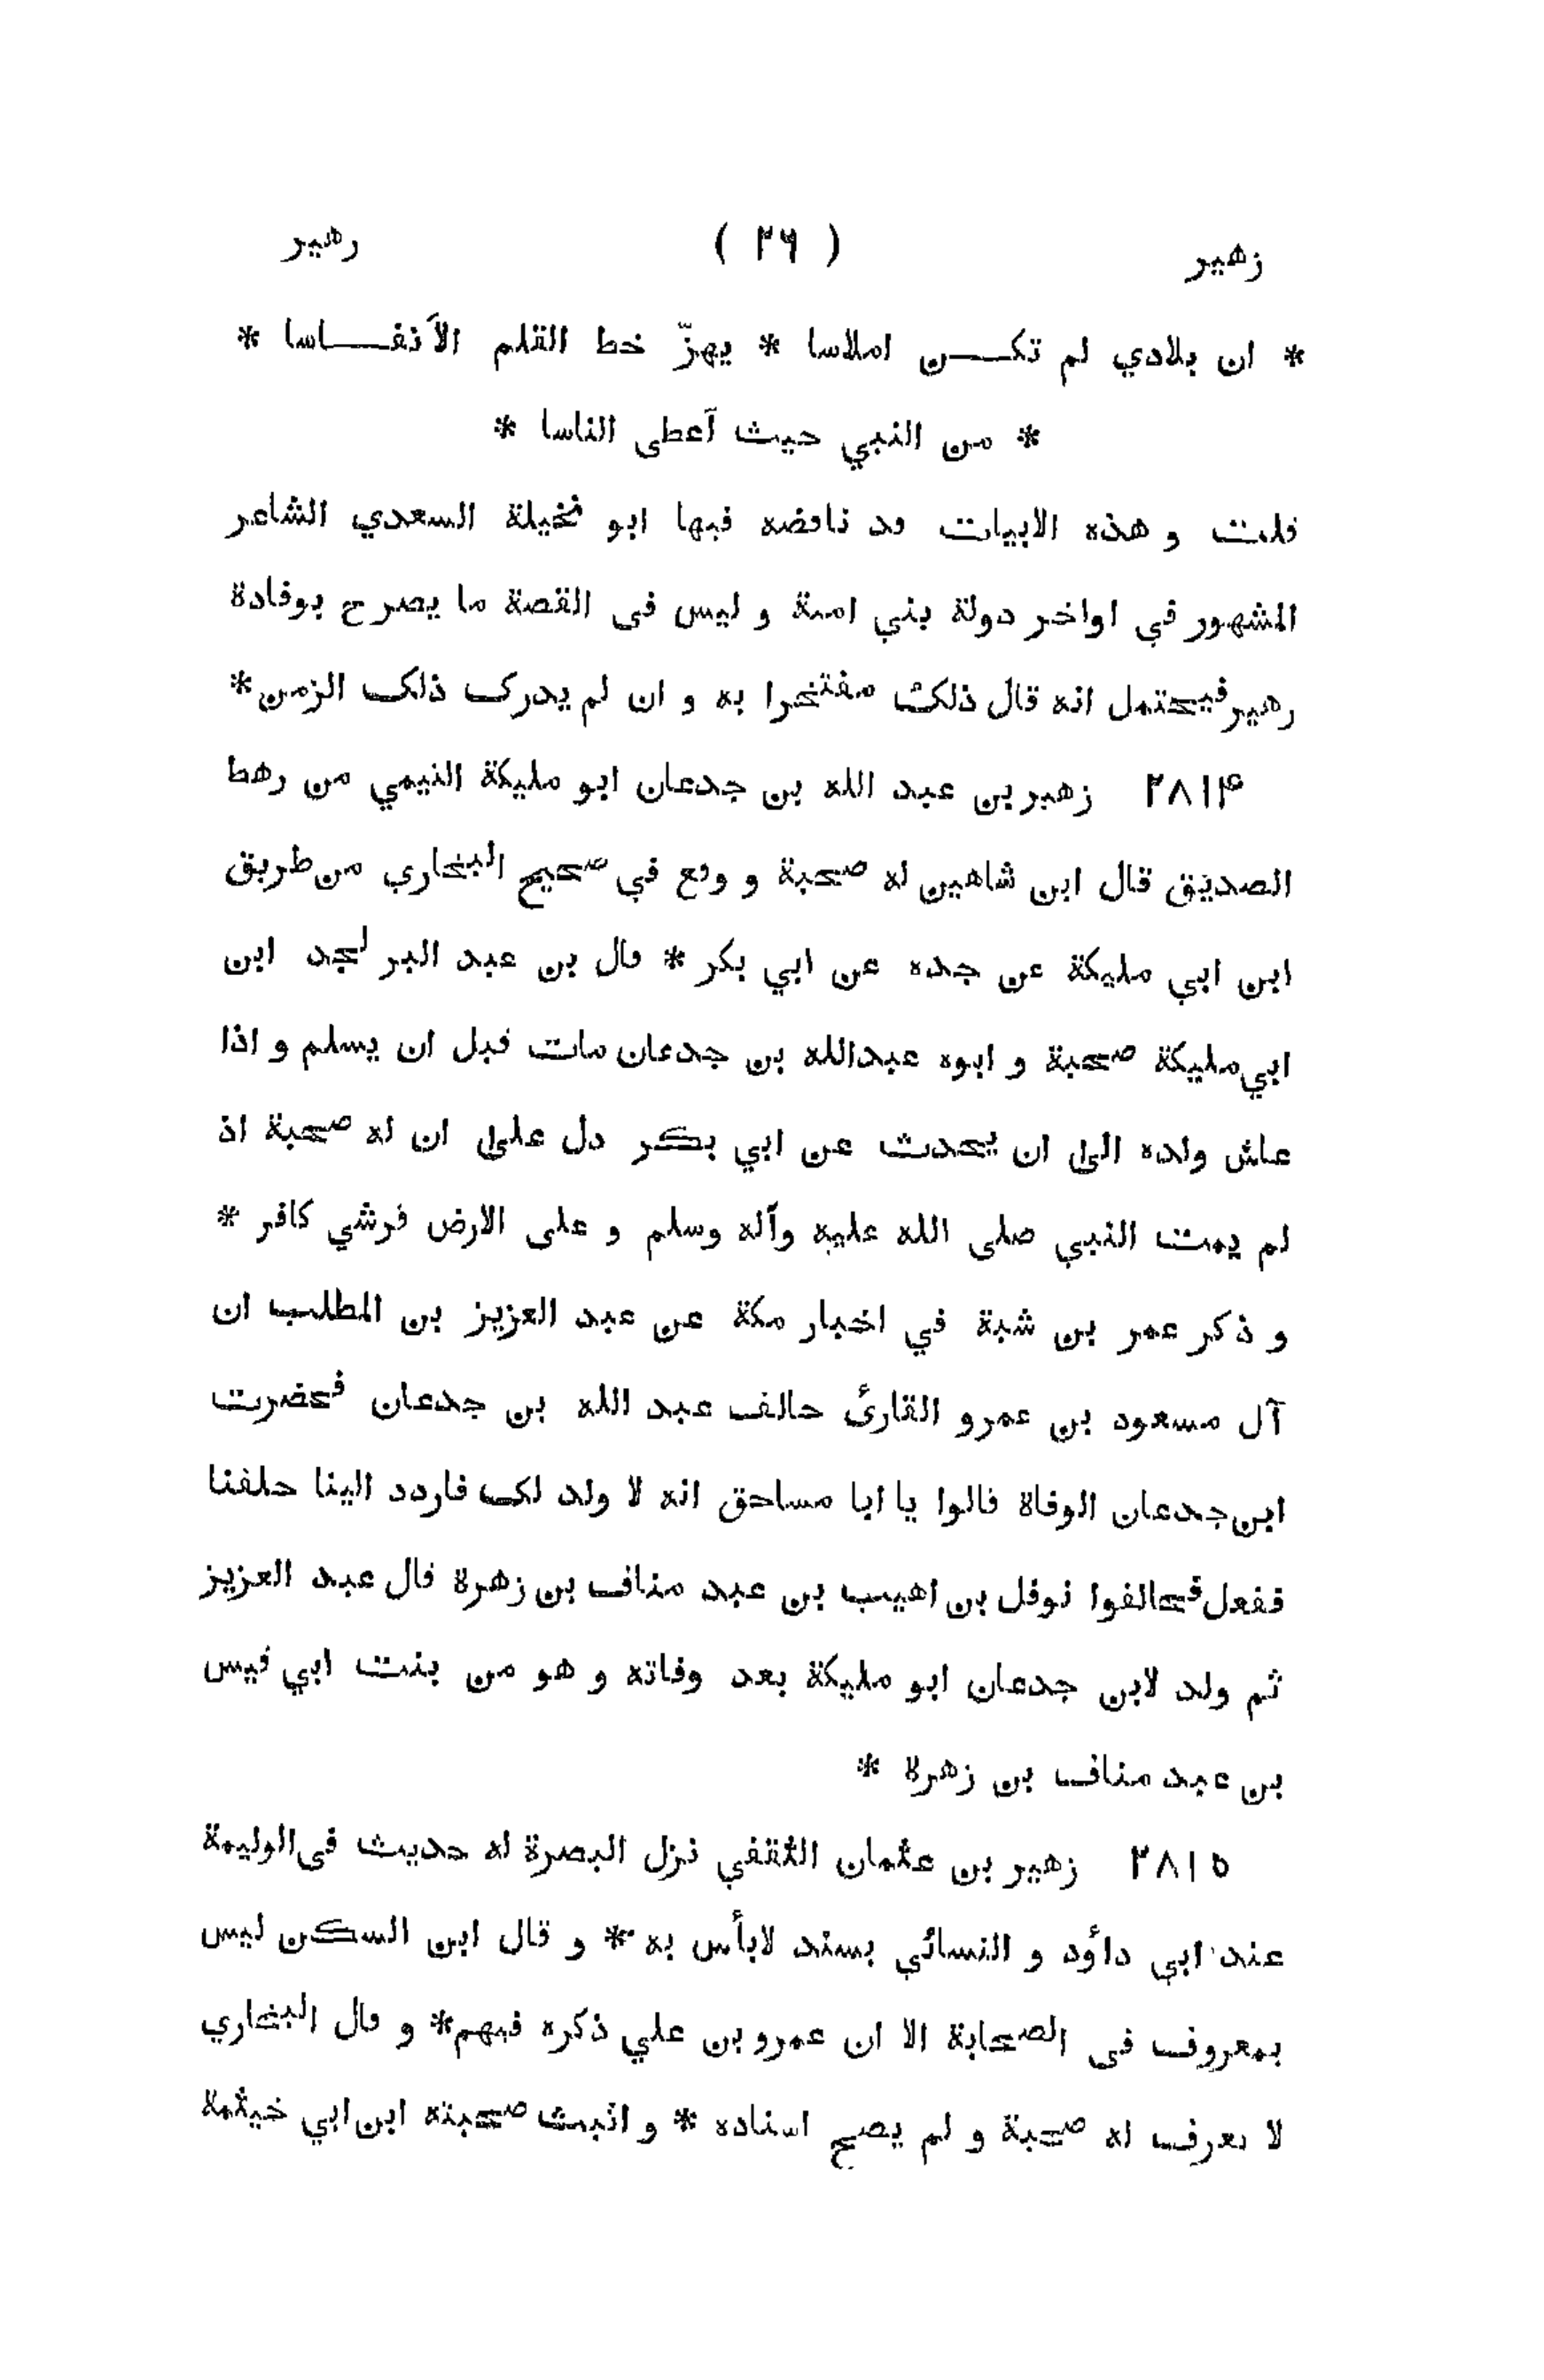 زهير ( ٢٦ ) زهير
* ان بلادي لم تكن املاسا * يهزّ خط القلم الأنفاسا *
* من النبي حيث أعطى الناسا *
قلت و هذه الابيات قد ناقضه فيها ابو نخيلة السعدي الشاعر
المشهور في اواخر دولة بني امية و ليس فى القصة ما يصرح بوفادة
زهير فيحتمل انه قال ذلك مفتخرا به و ان لم يدرك ذلك الزمن *
٢٨١٤ زهير بن عبد الله بن جدعان ابو مليكة التيمي من رهط
الصديق قال ابن شاهين له صحبة و وقع في صحيح البخاري من طريق
ابن ابي مليكة عن جده عن ابي بكر * قال بن عبد البر لجد ابن
ابي مليكة صحبة و ابوه عبدالله بن جدعان مات قبل ان يسلم و اذا
عاش ولده الى ان يحدث عن ابي بكر دل على ان له صحبة اذ
لم يمت النبي صلى الله عليه وآله وسلم و على الارض قرشي كافر *
و ذكر عمر بن شبة في اخبار مكة عن عبد العزيز بن المطلب ان
آل مسعود بن عمرو القارئ حالف عبد الله بن جدعان فحضرت
ابن جدعان الوفاة قالوا يا ابا مساحق انه لا ولد لك فاردد الينا حلفنا
ففعل فحالفوا نوفل بن اهيب بن عبد مناف بن زهرة قال عبد العزيز
ثم ولد لابن جدعان ابو مليكة بعد وفاته و هو من بنت ابي قيس
بن عبد مناف بن زهرة *
٢٨١٥ زهير بن عثمان الثقفي نزل البصرة له حديث فى الوليمة
عند ابي داؤد و النسائي بسند لابأس به * و قال ابن السكن ليس
بمعروف فى الصحابة الا ان عمرو بن علي ذكره فيهم * و قال البخاري
لا يعرف له صحبة و لم يصح اسناده * و اثبت صحبته ابن ابي خيثمة